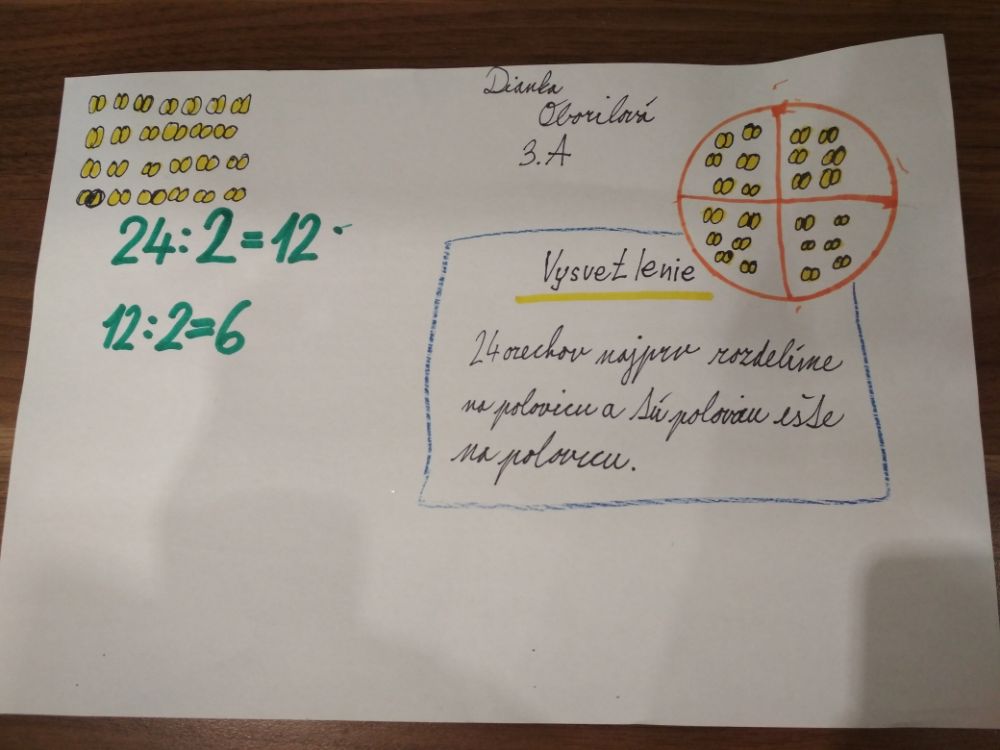 Dianka
Oborilová
3. A
24:2=12
12:2=6
Vysvetlenie
24 orechov najprv rozdelíme
na polovicu a tú polovicu ešte
na polovicu.